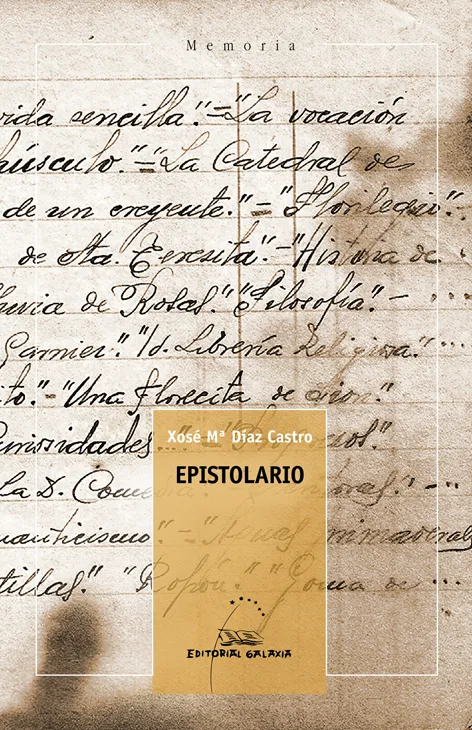 Memoria
vida sencilla." = "La vocación
púsculo." = "La Catedral de
de un creyente." - "Florilegio".
de Sta. Teresita". - "Historia de
lluvia de Rosas." "Filosofía". -
Garnier". "Id. Librería Religiosa." ...
ito". - "Una Florecita de Sion."
Curiosidades
La D.
"Aguas primaverales
tillas." "Ropón." "Goma de ...
Xosé Mª Díaz Castro
EPISTOLARIO
EDITORIAL GALAXIA